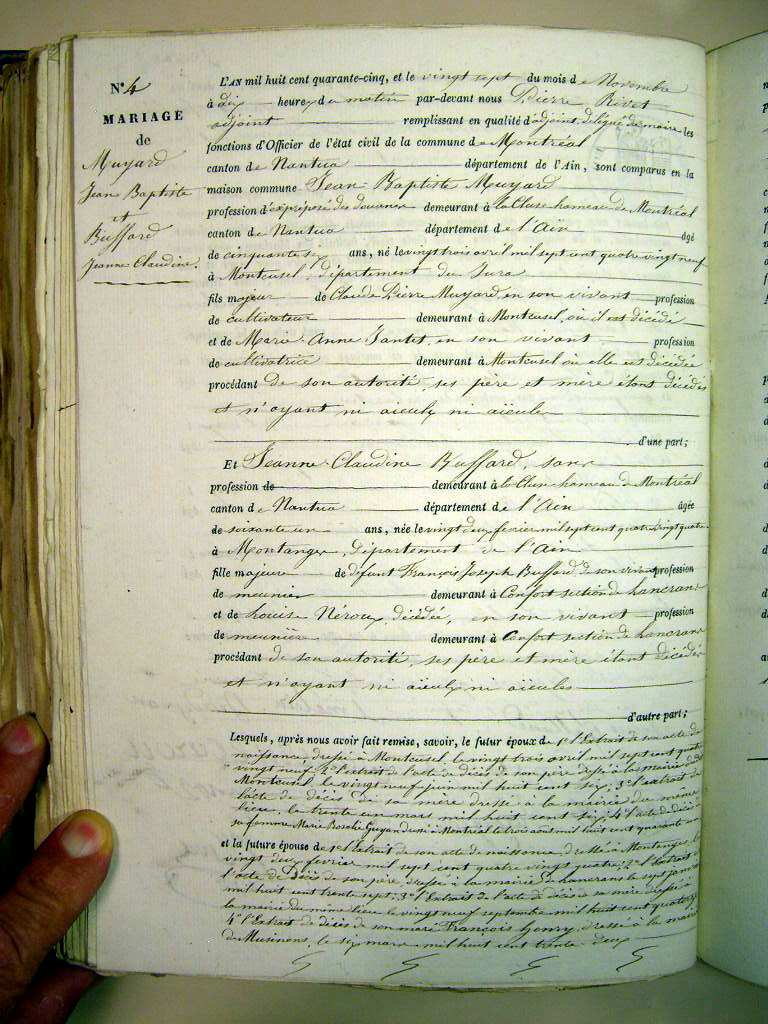 N° 4
MARIAGE
de
Muyard
Jean Baptiste
et
Buffard
Jeanne Claudine.
L'AN mil huit cent quarante-cinq, et le vingt sept du mois de Novembre
à dix heures du matin par-devant nous Pierre Rivet
adjoint remplissant en qualité d'adjoint délégué du maire les
fonctions d'Officier de l'état civil de la commune de Montréal
canton de Nantua département de l'Ain, sont comparus en la
maison commune Jean Baptiste Muyard
profession d'ex préposé des douanes demeurant à la Cluse hameau de Montréal
canton de Nantua département de l'Ain âgé
de cinquante six ans, né le vingt trois avril mil sept cent quatre vingt neuf
à Montcusel, département du Jura
fils majeur de Claude Pierre Muyard, en son vivant profession
de cultivateur demeurant à Montcusel, où il est décédé
et de Marie Anne Jantet, en son vivant profession
de cultivatrice demeurant à Montcusel où elle est décédée
procédant de son autorité, ses père et mère étant décédés
et n'ayant ni aïeulx ni aïeules
d'une part;
Et Jeanne Claudine Buffard, sans
profession de demeurant à la Cluse hameau de Montréal
canton de Nantua département de l'Ain âgée
de soixante un ans, née le vingt deux fevrier mil sept cent quatre vingt quatre
à Montanges, département de l'Ain
fille majeure de défunt François Joseph Buffard, de son vivant profession
de meunier demeurant à Confort section de Lancrans
et de Louise Néroux, décédée, en son vivant profession
de meunière demeurant à Confort section de Lancrans
procédant de son autorité, ses père et mère étant décédés
et n'ayant ni aïeulx ni aïeules
d'autre part;
Lesquels, après nous avoir fait remise, savoir, le futur époux de 1° l'Extrait de son acte de
naissance, dressé à Montcusel, le vingt trois avril mil sept cent quatre
vingt neuf; 2° l'extrait de l'acte de décès de son père dressé à la mairie de
Montcusel, le vingt neuf juin mil huit cent six; 3° l'extrait de
l'acte de décès de sa mère dressé à la mairie du même
lieu, le trente un mars mil huit cent six; 4° l'acte de décès de
sa femme Marie Rosalie dressé à Montréal le trois aout mil huit cent quarante un
et la future épouse de 1° l'Extrait de son acte de naissance, dressé à Montanges, le
vingt deux fevrier mil sept cent quatre vingt quatre; 2° l'Extrait de
l'acte de décès de son père, dressé à la mairie de Lancrans le sept janvier
mil huit cent trente sept; 3° l'Extrait de l'acte de décès de sa mère dressé à
la mairie du même lieu le vingt neuf septembre mil huit cent quatorze
4° l'Extrait de décès de son mari François Genry, dressé à la mairie
de Musinens, le six mars mil huit cent trente deux